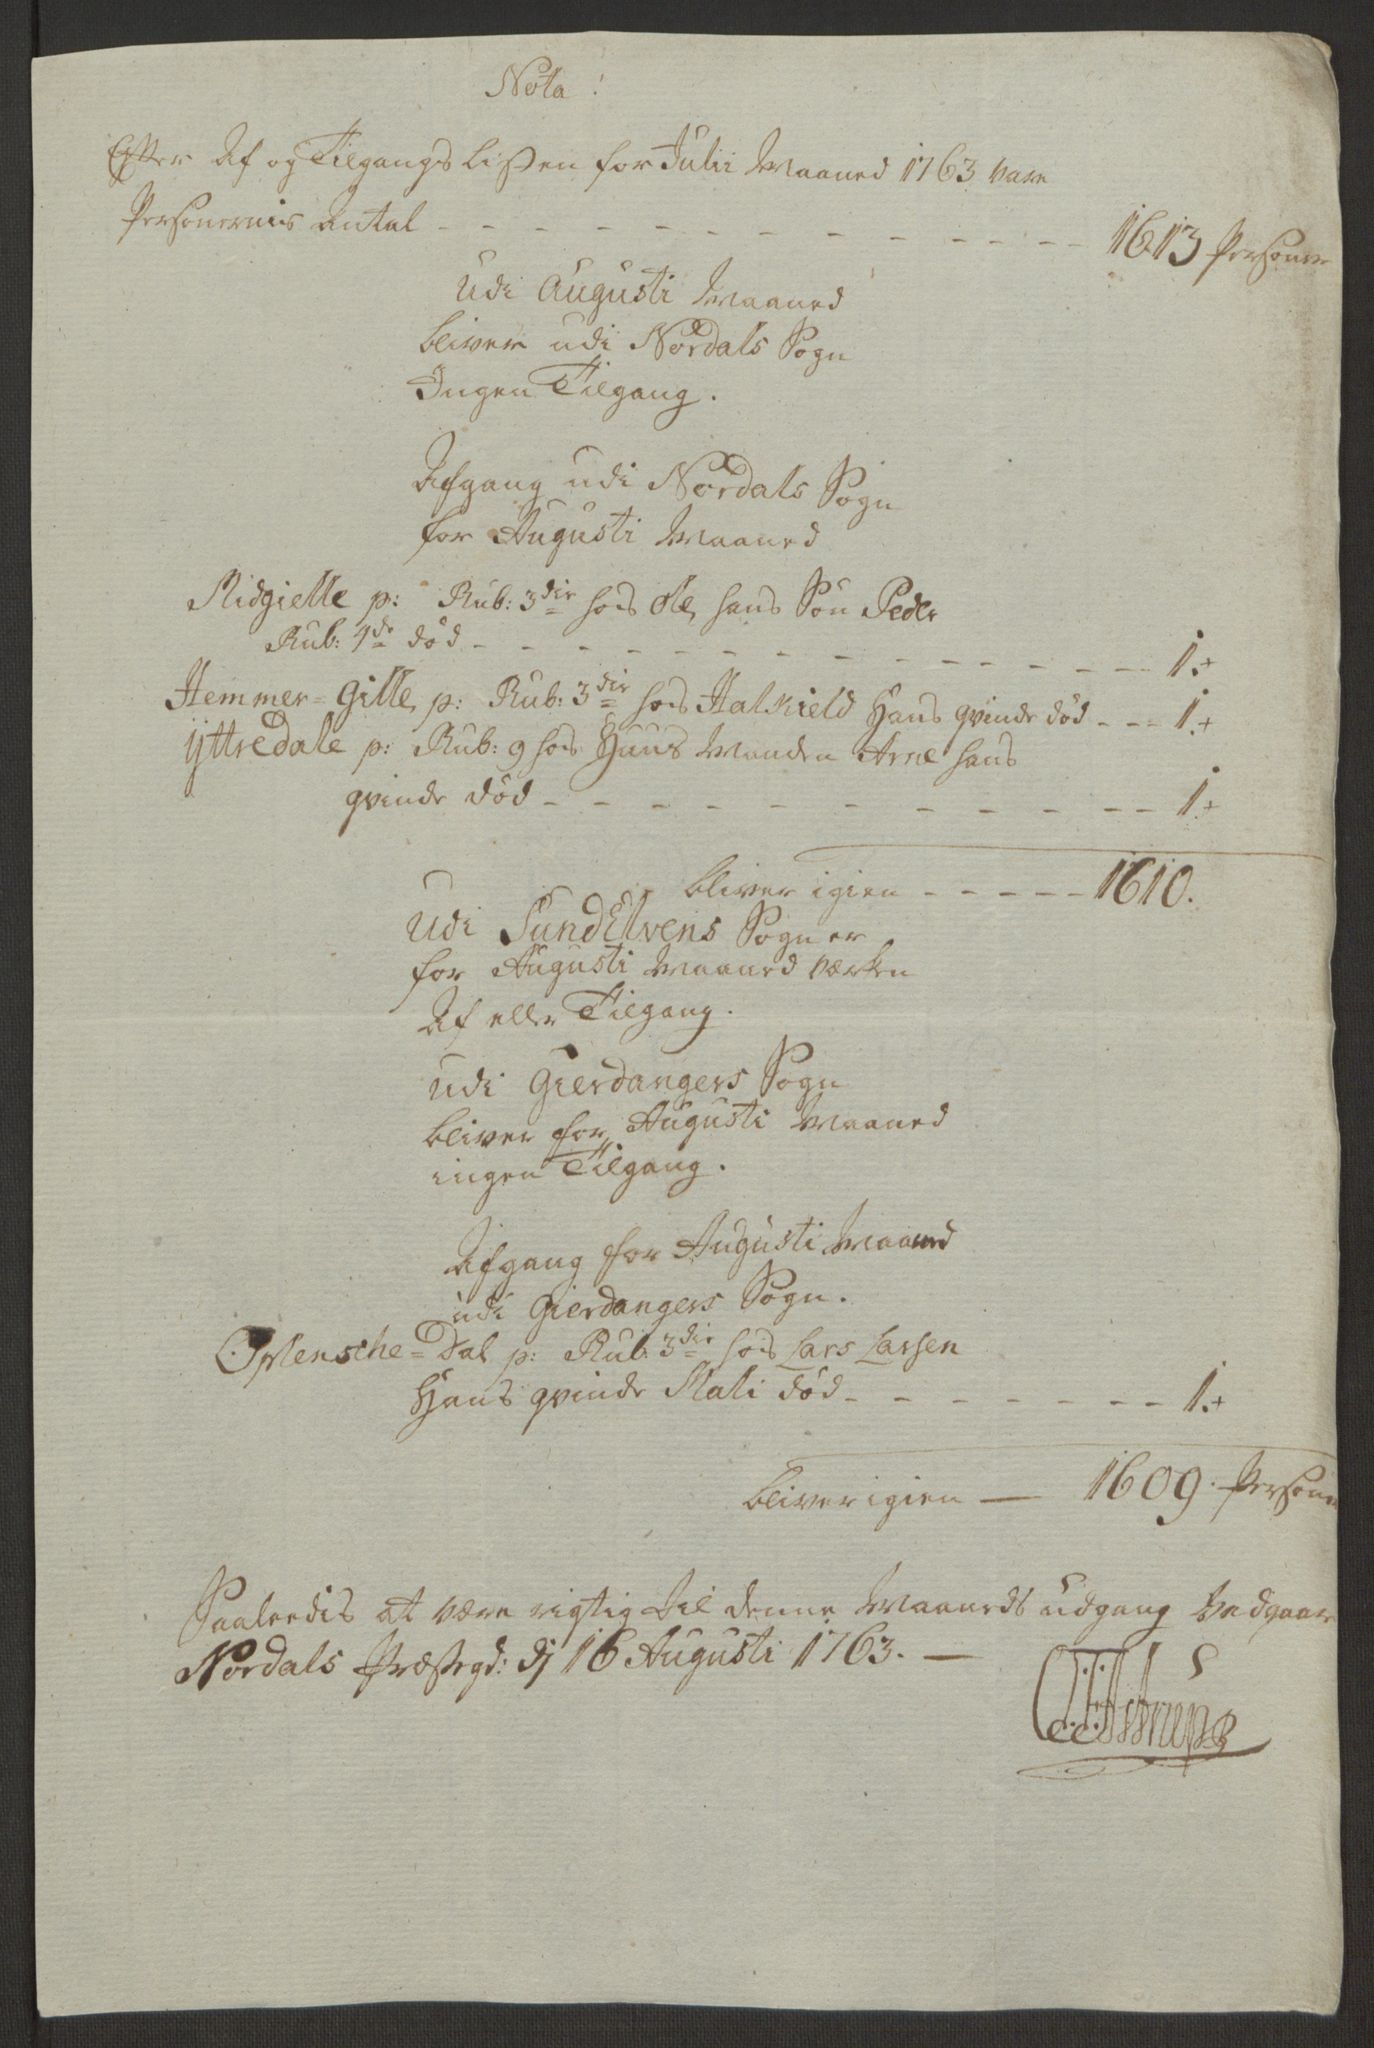 Nota !
Efter Af og Tilgangs Listen for Julii Maaned 1763 vare
Personernis Antal - - - - - - - - - - - - 1613 Personer
Udi Augusti Maaned
bliver udi Nordals Sogn
Ingen Tilgang.
Afgang udi Nordals Sogn
for Augusti Maaned
Midgielle p: Rub: 3die hos Ole, hans Søn Peder
Rub: 4de død - - - - - - - - - - - - 1.+
Hemmer= Gille, p: Rub: 3die hos Halkield Hans qvinde død - - - 1.+
Yttredale p: Rub: 9 hos Huus Manden Arne hans
qvinde død - - - - - - - - - - - 1.+
bliver igien - - - - - 1610.
Udi SundElvens Sogn er
for Augusti Maaned værken
Af eller Tilgang.
Udi Gierdangers Sogn
bliver for Augusti Maaned
ingen Tilgang.
Afgang for Augusti Maaned
udi Gierdangers Sogn.
Oplensche= Dal p: Rub: 3die hos Lars Larsen
Hans qvinde Mali død - - - - - - - 1.+
bliver igien — 1609. Persone
Saaleedis at være rigtig til denne Maaneds udgang vedgaar
Nordals Præstegd: dj 16 Augusti 1763. —
Astrup